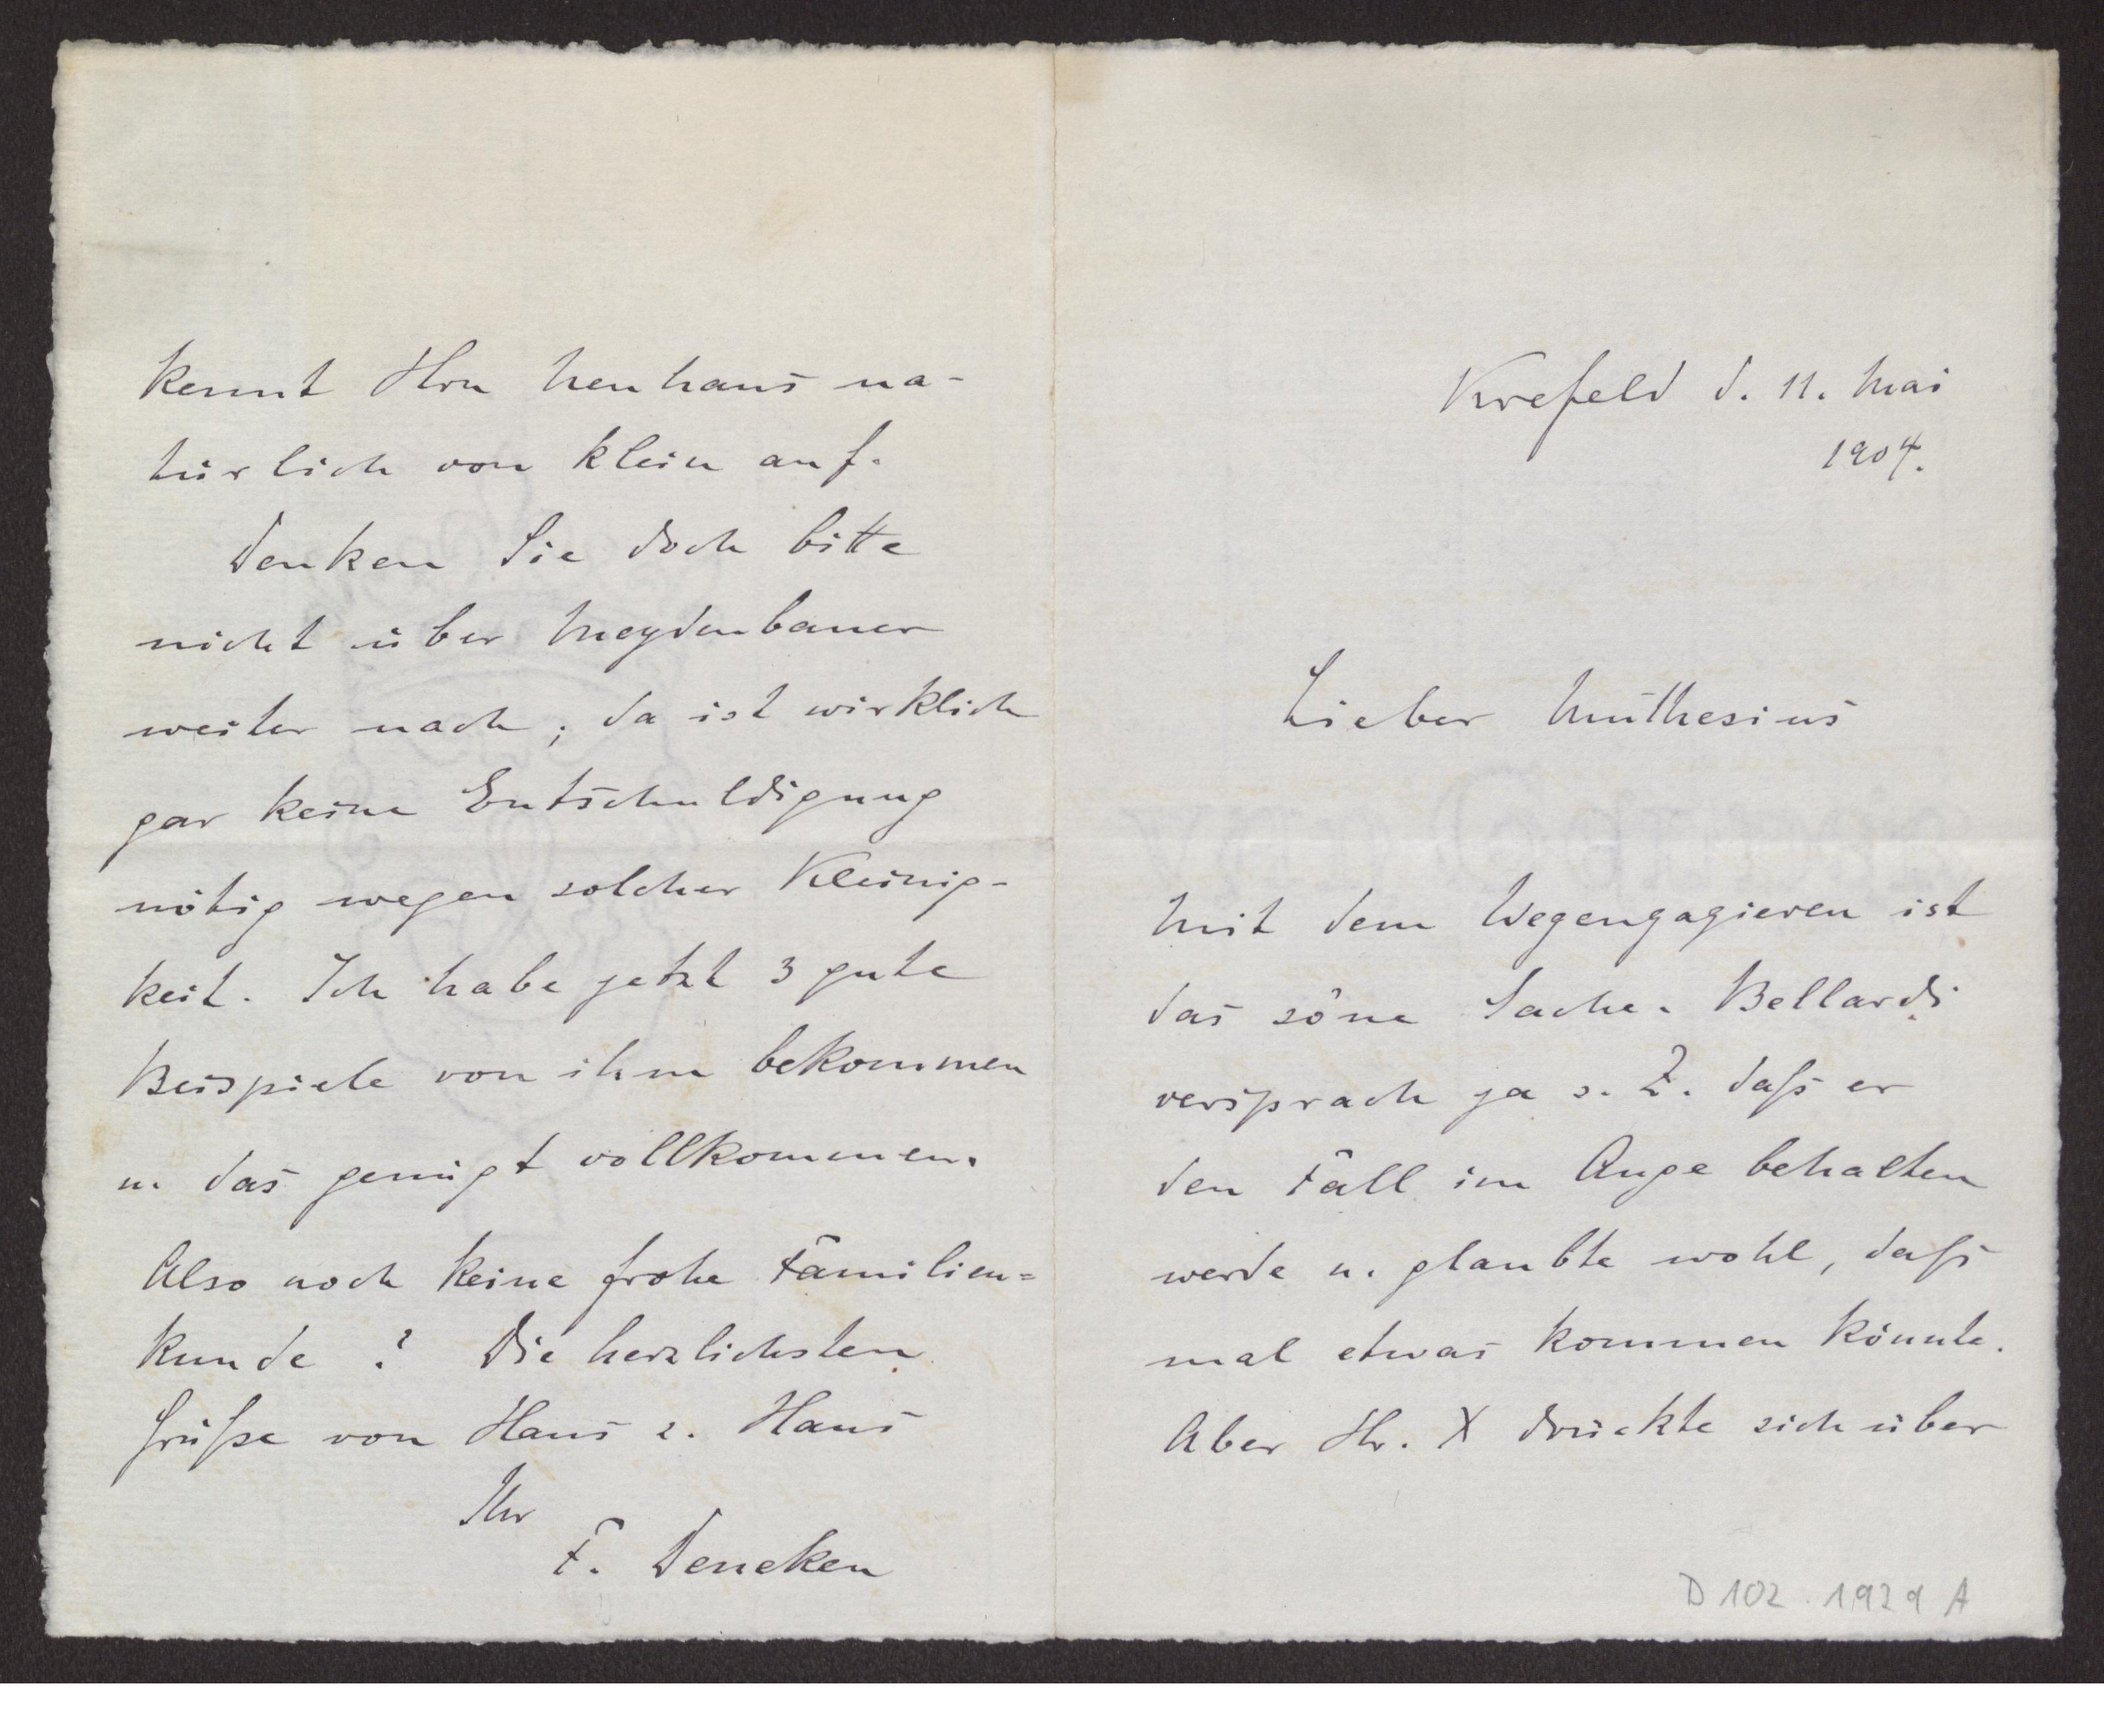 Krefeld d. 11. Mai
1904.
Lieber Muthesius
Mit dem Wegengagieren ist
das söne Sache. Bellardi
versprach ja s. Z. daß er
den Fall im Auge behalten
werde u. glaubte wohl, daß
mal etwas kommen könnte.
Aber Hr. X drückte sich über
D 102 1929 A
kennt Hrn Neuhaus na-
türlich von klein auf.
Denken Sie doch bitte
nicht über Meydenbauer
weiter nach; da ist wirklich
gar keine Entschuldigung
nötig wegen solcher Kleinig-
keit. Ich habe jetzt 3 gute
Beispiele von ihm bekommen
u. das genügt vollkommen.
Also noch keine frohe Familien=
kunde? Die herzlichsten
Grüße von Haus z. Haus
Ihr
F. Deneken